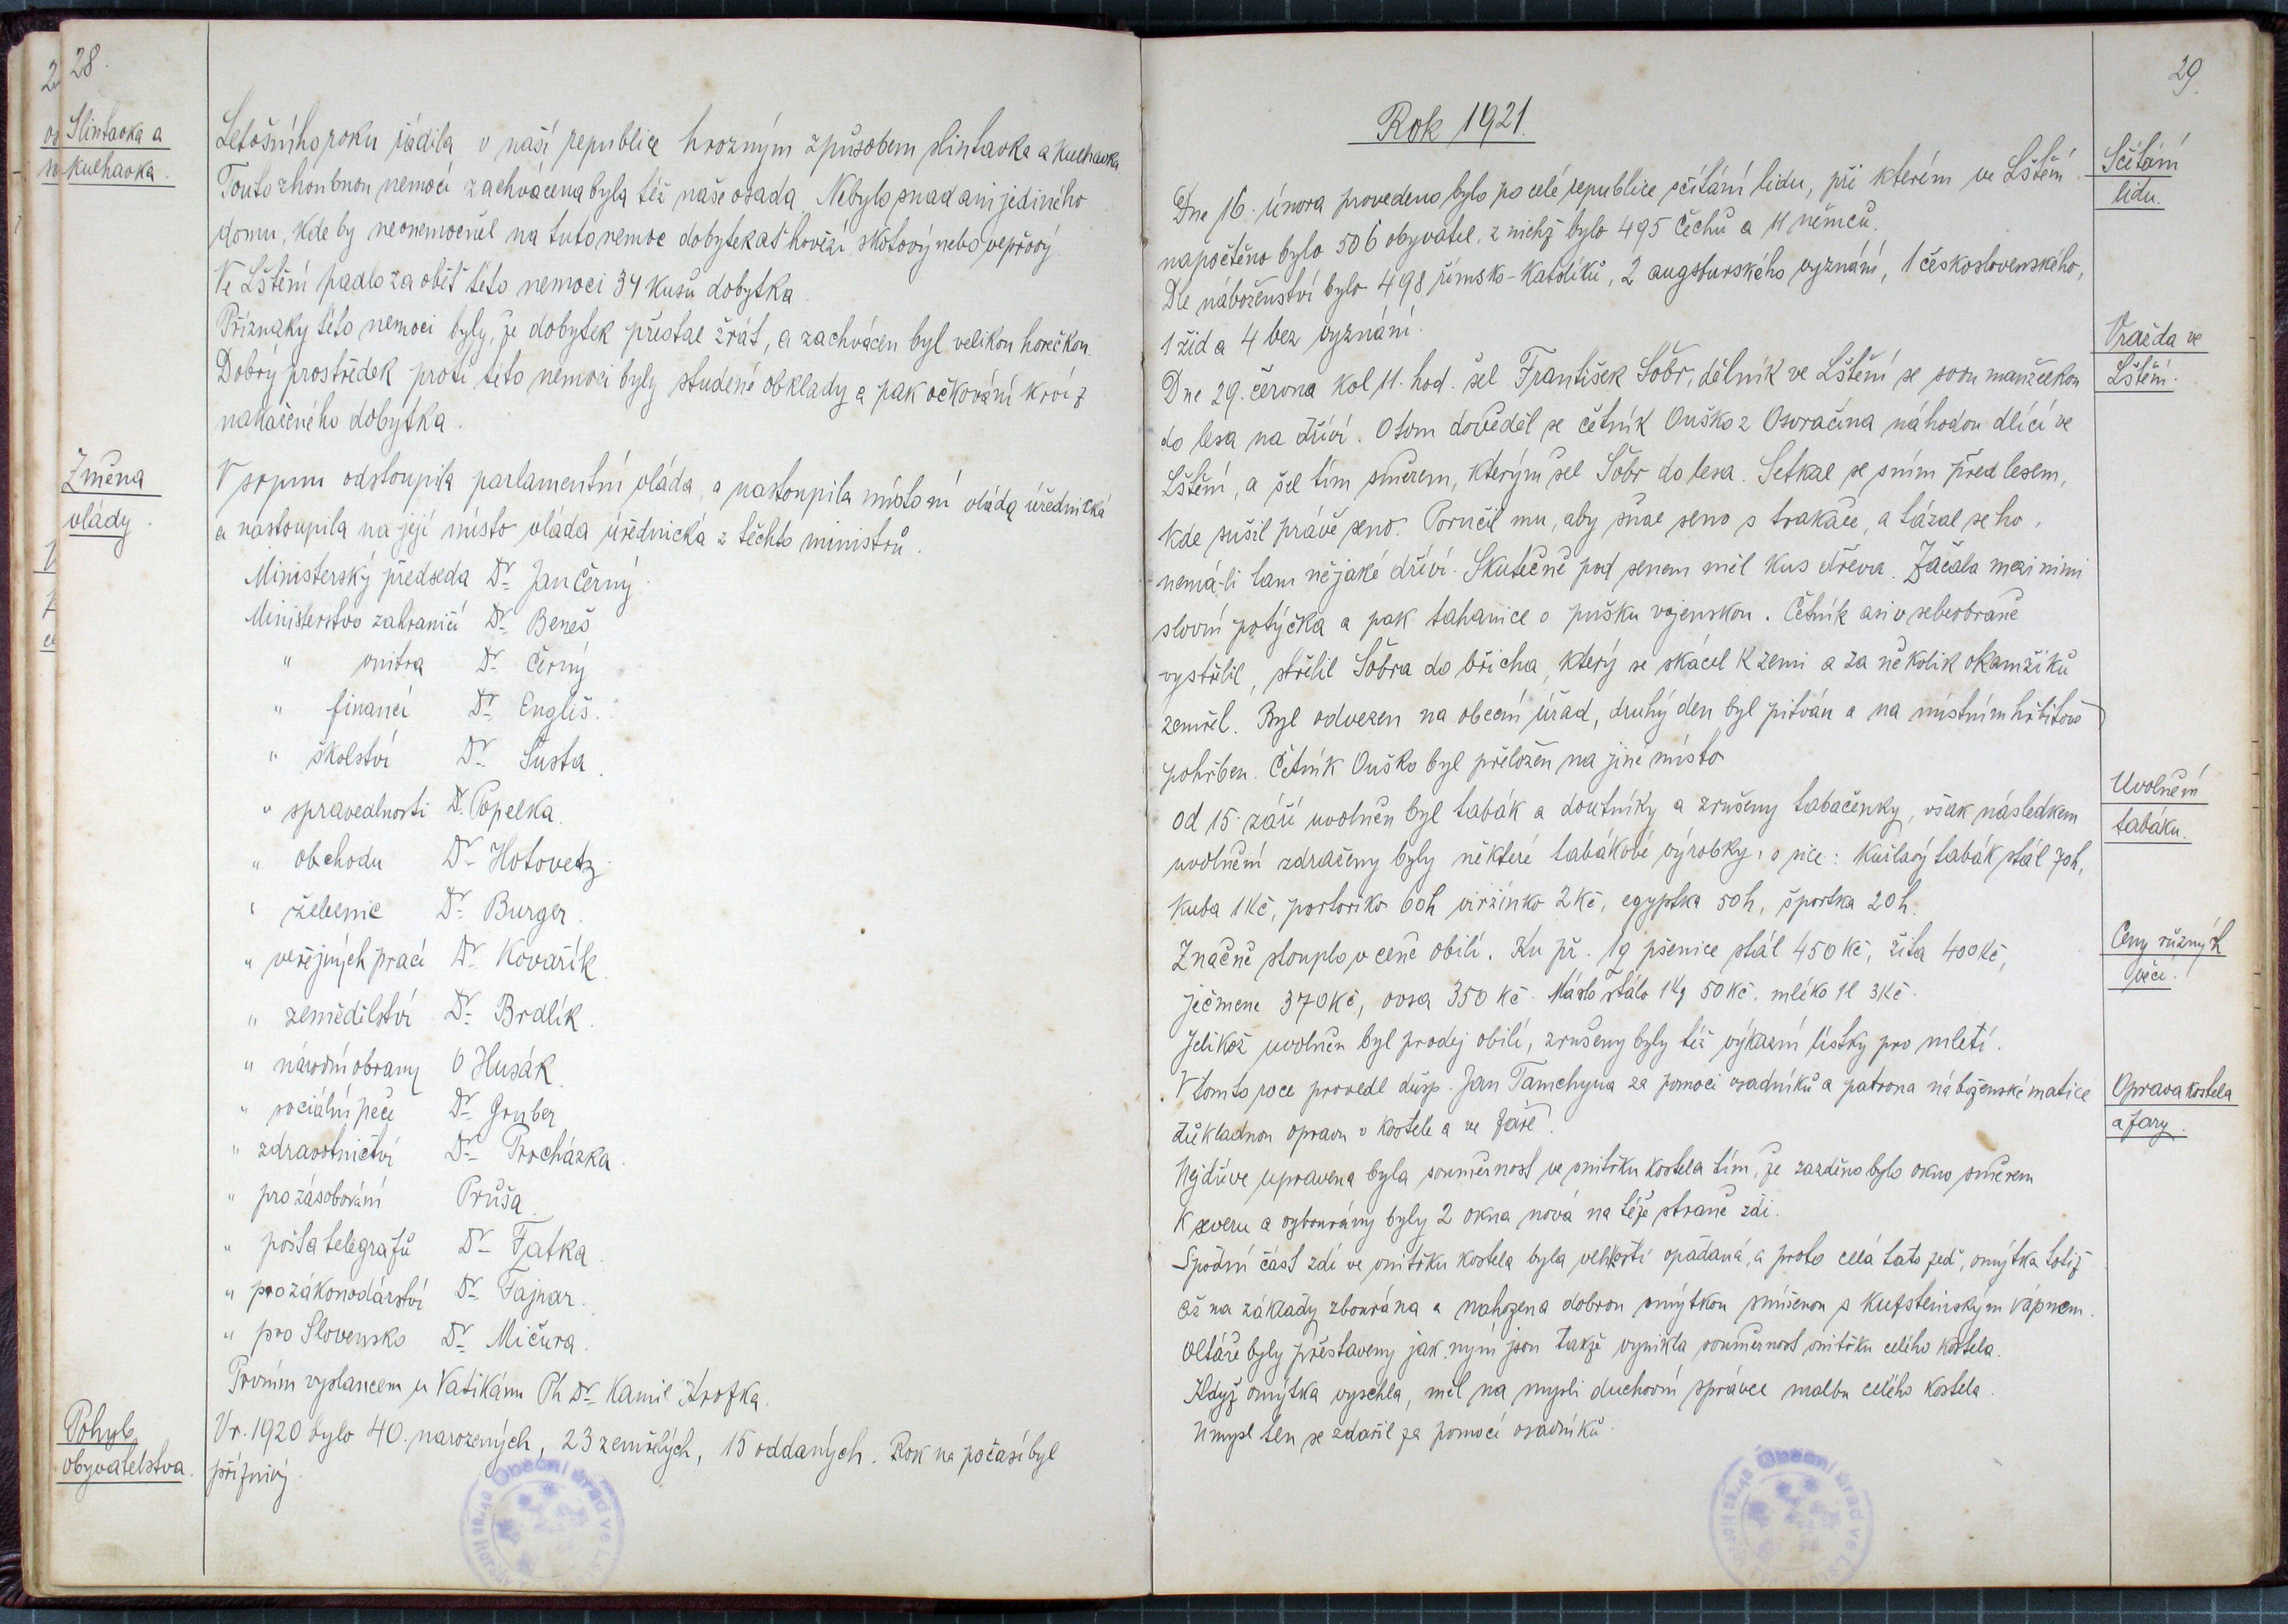 28.
Slintavka a
kulhavka.
Letošního roku řádila v naší republice hrozným způsobem slintavka a kulhavka
Touto zhoubnou nemocí zachvácena byla též naše osada. Nebylo snad ani jediného
domu, kde by neonemocněl na tuto nemoc dobytek ať hovězí skotový nebo vepřový.
Ve Lštění padlo za oběť této nemoci 34 kusů dobytka.
Příznaky této nemoci byly, že dobytek přestal žrát, a zachvácen byl velikou horečkou.
Dobrý prostředek proti této nemoci byly studené obklady a pak očkování krví z
nakaženého dobytka.
Změna
vlády.
V srpnu odstoupila parlamentní vláda, a nastoupila místo ní vláda úřednická
a nastoupila na její místo vláda úřednická z těchto ministrů.
Ministerský předseda Dr. Jan Černý.
Ministerstvo zahraničí Dr. Beneš
" vnitra Dr. Černý
" financí Dr. Engliš.
" školství Dr. Šusta.
" spravedlnosti Dr. Popelka.
" obchodu Dr. Hotovetz.
" železnic Dr. Burger.
" veřejných prací Dr. Kovařík
" zemědělství Dr. Brdlík.
" národní obrany O Husák.
" sociální péče Dr. Gruber
" zdravotnictví Dr. Procházka.
" pro zásobování Průša.
" pošt a telegrafů Dr. Fatka.
" pro zákonodárství Dr. Fajnar.
" pro Slovensko Dr. Mičura.
Prvním vyslancem u Vatikánu Ph Dr. Kamil Krofka.
Pohyb
obyvatelstva.
V r. 1920 bylo 40. narozených, 23 zemřelých, 15 oddaných. Rok na počasí byl
příznivý.
Obecní úřad ve
29.
Rok 1921.
Sčítání
lidu.
Dne 16. února provedeno bylo po celé republice sčítání lidu, při kterém ve Lštění
napočteno bylo 506 obyvatel, z nichž bylo 495 Čechů a 11 němců.
Dle náboženství bylo 498 římsko-katolíků, 2 augsburského vyznání, 1 československého,
1 žid a 4 bez vyznání.
Vražda ve
Lštění.
Dne 29. června kol 11. hod. šel František Šobr, dělník ve Lštění se svou manželkou
do lesa na dříví. O tom dověděl se četník Ouško z Osvračína náhodou dlící ve
Lštění, a šel tím směrem, kterým šel Šobr do lesa. Setkal se s ním před lesem,
kde sušil právě seno. Poručil mu, aby sňal seno s trakaře, a tázal se ho,
nemá-li tam nějaké dříví. Skutečně pod senem měl kus dřeva. Začala mezi nimi
slovní potyčka a pak tahanice o pušku vojenskou. Četník asi v sebeobraně
vystřelil, střelil Šobra do břicha, který se skácel k zemi a za několik okamžiků
zemřel. Byl odvezen na obecní úřad, druhý den byl pitván a na místním hřbitově
pohřben. Četník Ouško byl přeložen na jiné místo
Uvolnění
tabáku.
Od 15. září uvolněn byl tabák a doutníky a zrušeny tabačenky, však následkem
uvolnění zdraženy byly některé tabákové výrobky, a sice: kuřlavý tabák stál 70h,
kuba 1Kč, portoriko 60h viržinko 2Kč, egyptka 50h, športka 20h.
Ceny různých
věcí.
Značně stouplo v ceně obilí. Ku př. 1q pšenice stál 450 Kč, žita 400 Kč,
ječmene 370Kč, ovsa 350 Kč. Máslo stálo 1 kg 50 Kč. mléko 1l 3Kč.
Jelikož uvolněn byl prodej obilí, zrušeny byly též výkazní lístky pro mletí.
Oprava kostela
a fary.
V tomto roce provedl důsp. Jan Tamchyna za pomoci osadníků a patrona náboženské matice
důkladnou opravu v kostele a ve faře.
Nejdříve upravena byla souměrnost ve vnitřku kostela tím, že zazděno bylo okno směrem
k severu a vybourány byly 2 okna nová na téže straně zdi.
Spodní část zdi ve vnitřku kostela byla vlhkostí opadaná, a proto celá tato zeď, omýtka totiž
až na základy zbourána a nahozena dobrou omýtkou smíšenou s Kufsteinským vápnem.
Oltáře byly přestaveny jak nyní jsou takže vynikla souměrnost vnitřku celého kostela.
Když omýtka vyschla, měl na mysli duchovní správce malbu celého kostela.
Úmysl ten se zdařil za pomocí osadníků.
Obecní úřad ve